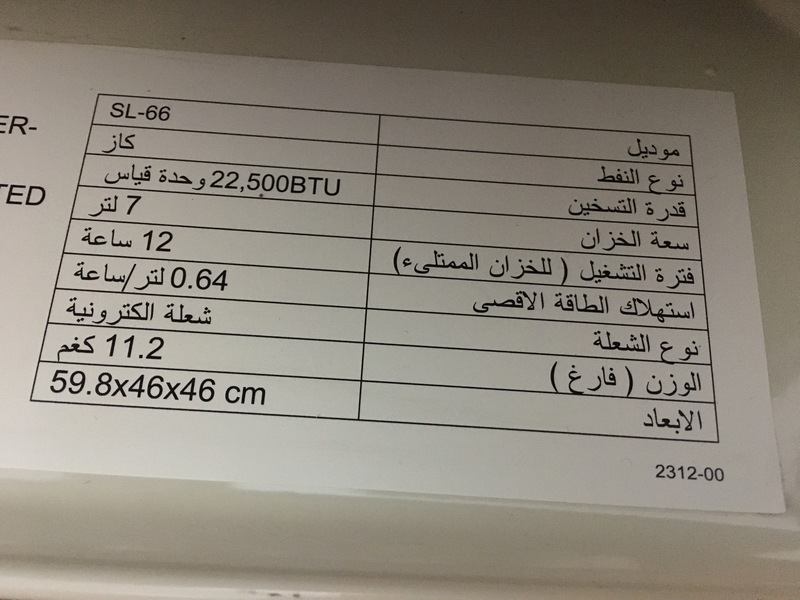 ER-
TED
موديل SL-66
نوع النفط كاز
قدرة التسخين 22,500BTU وحدة قياس
سعة الخزان 7 لتر
فترة التشغيل ( للخزان الممتلىء) 12 ساعة
استهلاك الطاقة الاقصى 0.64 لتر/ساعة
نوع الشعلة شعلة الكترونية
الوزن ( فارغ ) 11.2 كغم
الابعاد 59.8x46x46 cm
2312-00